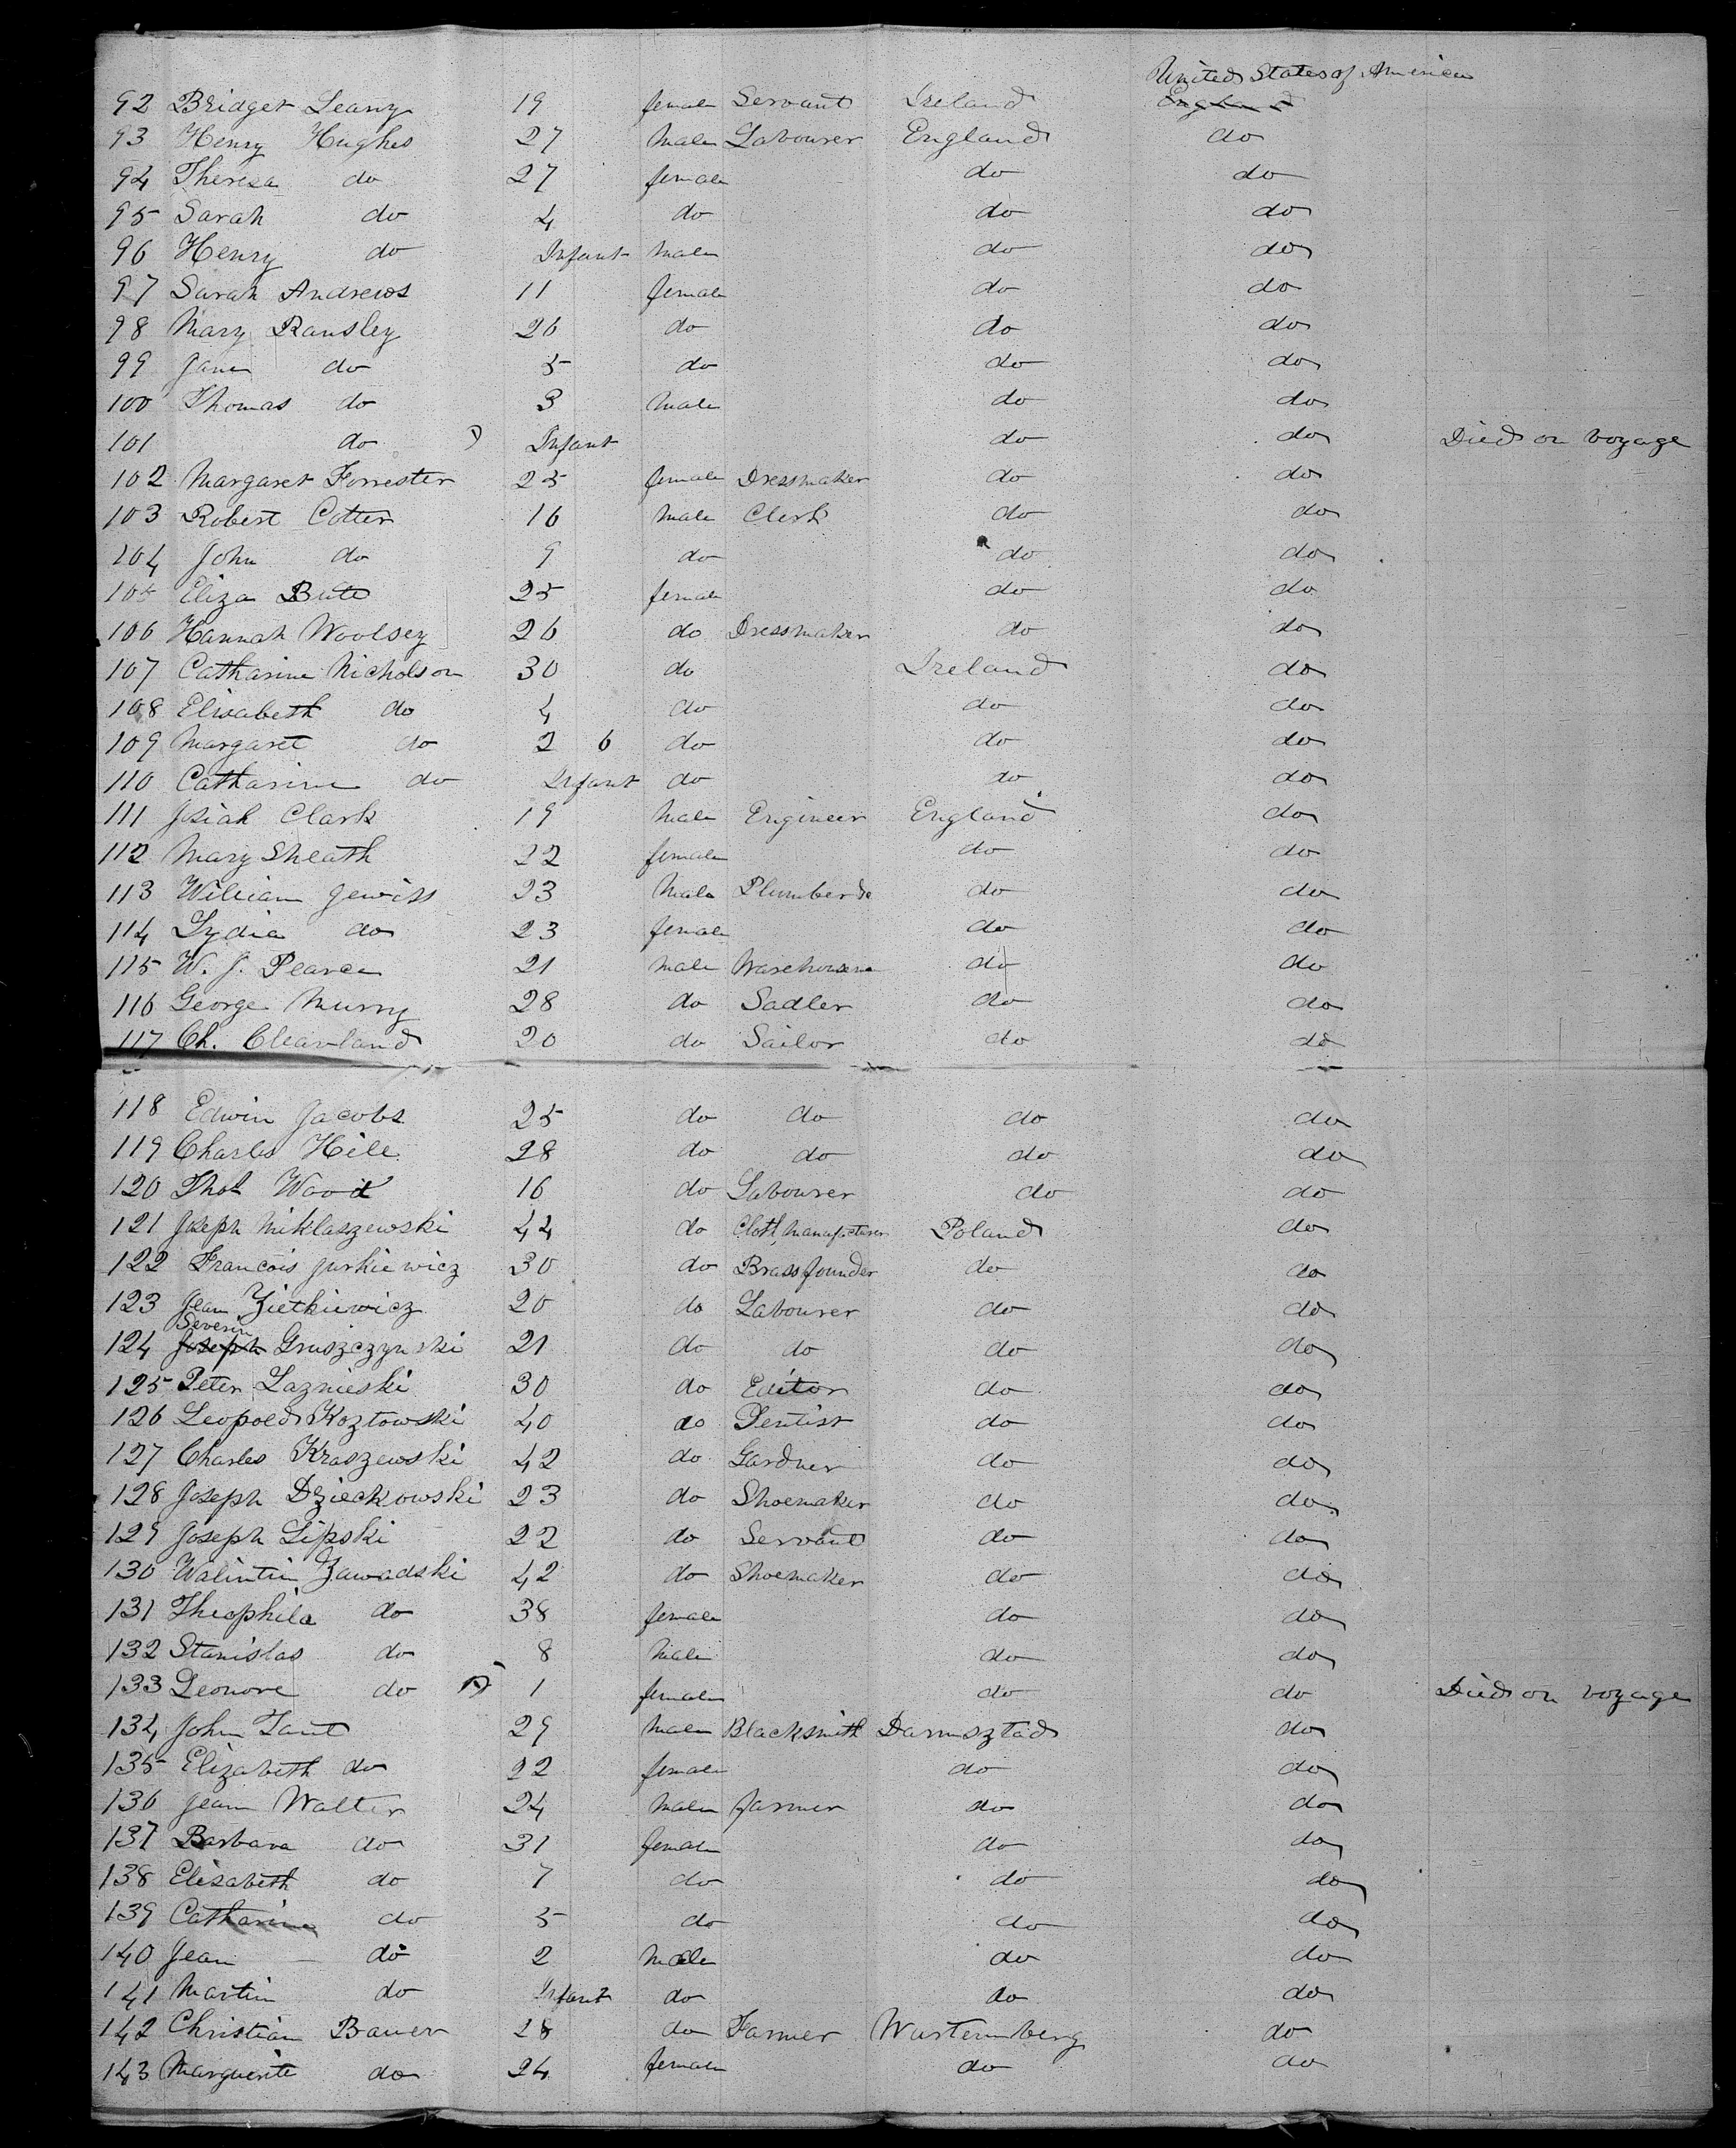 United States of America
92 Bridget Leany 19 female Servant Ireland England
93 Henry Hughes 27 Male Labourer England do
94 Theresa do 27 female do do
95 Sarah do 4 do do do
96 Henry do Infant Male do do
97 Sarah Andrews 11 female do do
98 Mary Ransley 26 do do do
99 Jane do 5 do do do
100 Thomas do 3 Male do do
101 do Infant do do Died on voyage
102 Margaret Forrester 25 female Dressmaker do do
103 Robert Cotter 16 Male Clerk do do
104 John do 9 do do do
105 Eliza Bute 25 female do do
106 Hannah Woolsey 26 do Dressmaker do do
107 Catharine Nicholson 30 do Ireland do
108 Elisabeth do 4 do do do
109 Margaret do 2 6 do do do
110 Catharine do Infant do do do
111 Josiah Clark 19 Male Engineer England do
112 Mary Sheath 22 female do do
113 William Jewiss 23 Male Plumber do do
114 Lydia do 23 female do do
115 W. J. Pearce 21 Male Warehousema do do
116 George Murry 28 do Sadler do do
117 Ch. Clearland 20 do Sailor do do
118 Edwin Jacobs 25 do do do do
119 Charles Hill 28 do do do do
120 Thos Wood 16 do Labourer do do
121 Joseph Miklaszewski 44 do Cloth Manufacturer Poland do
122 Francois Jurkiewicz 30 do Brass founder do do
123 Jean Zietkiewicz 20 do Labourer do do
Severin
124 Joseph Gruszczynski 21 do do do do
125 Peter Laznieski 30 do Editor do do
126 Leopold Koztowski 40 do Dentist do do
127 Charles Kraszewski 42 do Gardner do do
128 Joseph Dzieckowski 23 do Shoemaker do do
129 Joseph Lipski 22 do Servant do do
130 Walintin Zawadski 42 do Shoemaker do do
131 Theophila do 38 female do do
132 Stanislas do 8 Male do do
133 Leonore do 1 female do do Died on voyage
134 John Taut 29 Male Blacksmith Darmsztad do
135 Elizabeth do 22 female do do
136 Jean Walter 24 Male farmer do do
137 Barbara do 31 female do do
138 Elisabeth do 7 do do do
139 Catharina do 5 do do do
140 Jean do 2 Male do do
141 Martin do Infant do do do
142 Christian Bauer 28 do Farmer Wurtemberg do
143 Marguerite do 24 female do do